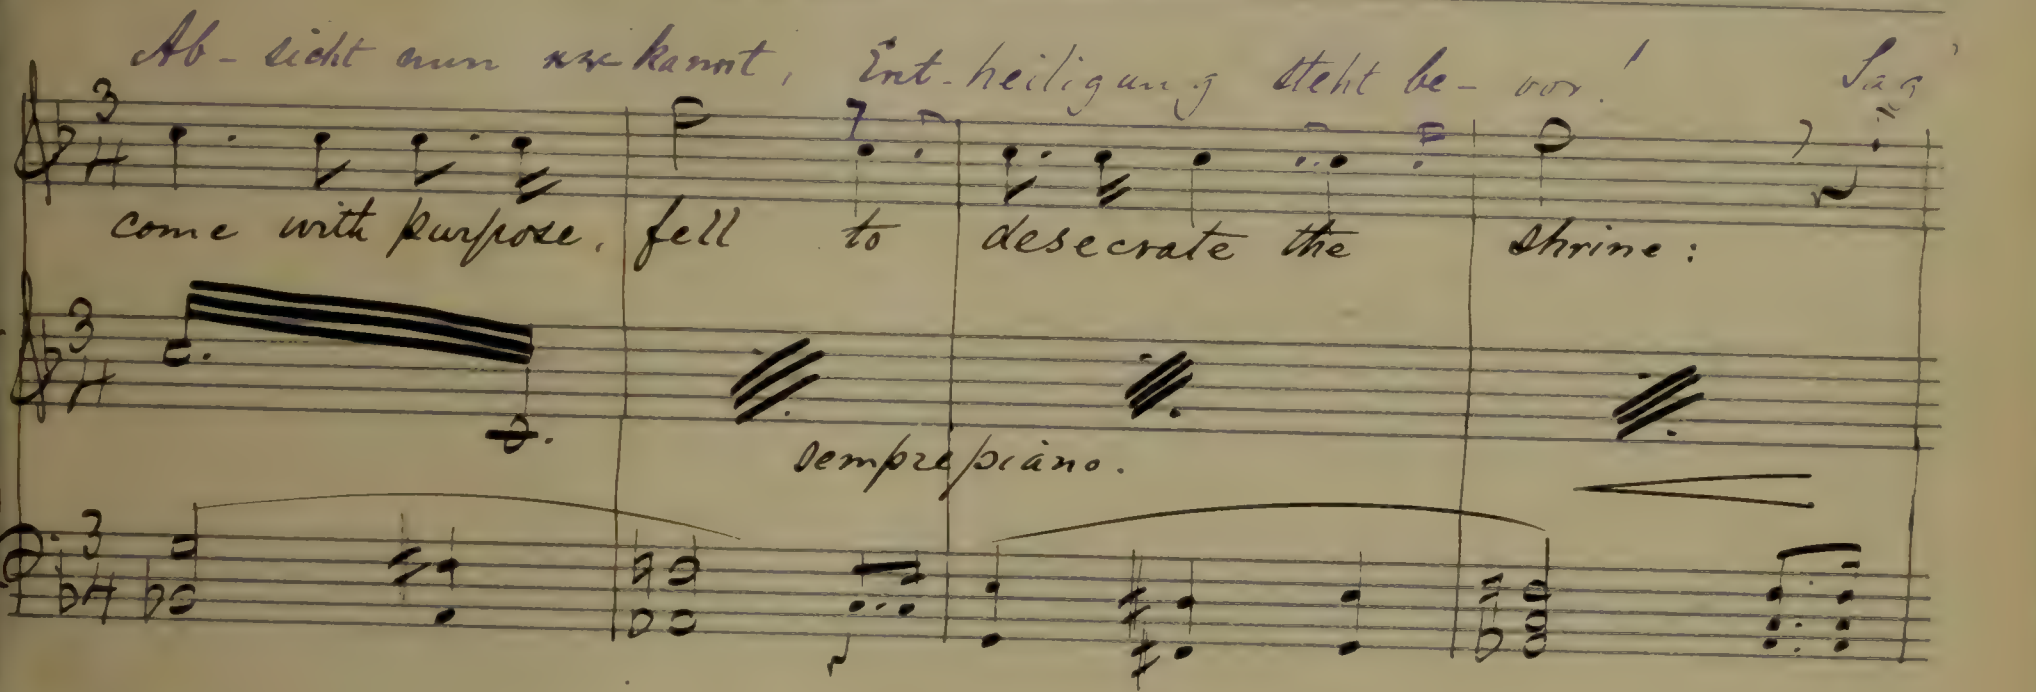 Ab - sicht nun er - kannt, Ent - heiligung steht be - vor! Sag'
come with purpose, fell to desecrate the shrine:
sempre piano.